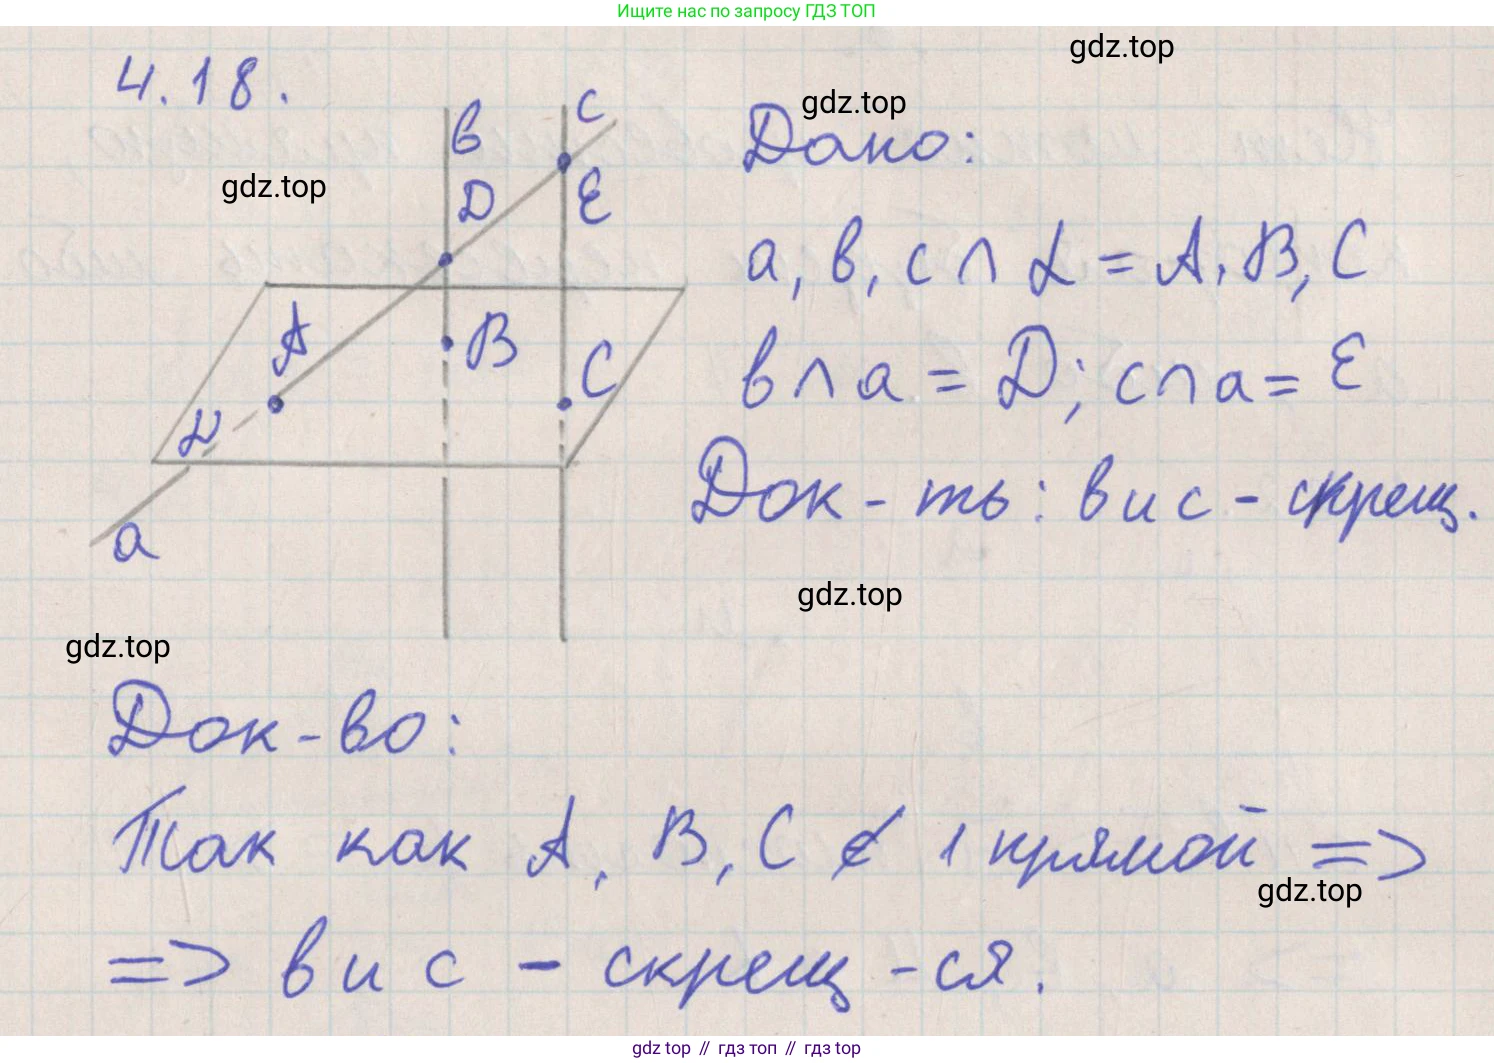 Ищите нас по запросу ГДЗ ТОП
gdz.top
4.18.
в
с
gdz.top
Дано:
gdz.top
D
E
a, в, с ∩ α = A, B, C
A
B
C
в ∩ a = D; с ∩ a = E
α
Док-ть: в и с - скрещ.
a
gdz.top
gdz.top
Док-во:
Так как A, B, C ∉ 1 прямой =>
gdz.top
=> в и с - скрещ-ся.
gdz top // гдз топ // гдз top